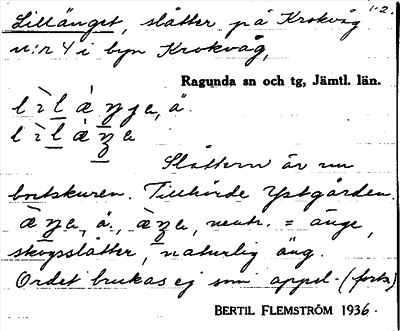 Lillänget, slåtter på Krokvåg 1-2.
n:r 4 i byn Krokvåg,
Ragunda sn och tg, Jämtl. län.
Slåttern är nu
bortskuren. Tillhörde Ystgården.
neutr. = änge,
skogsslåtter, naturlig äng.
Ordet brukas ej som appel. (forts)
BERTIL FLEMSTRÖM 1936.